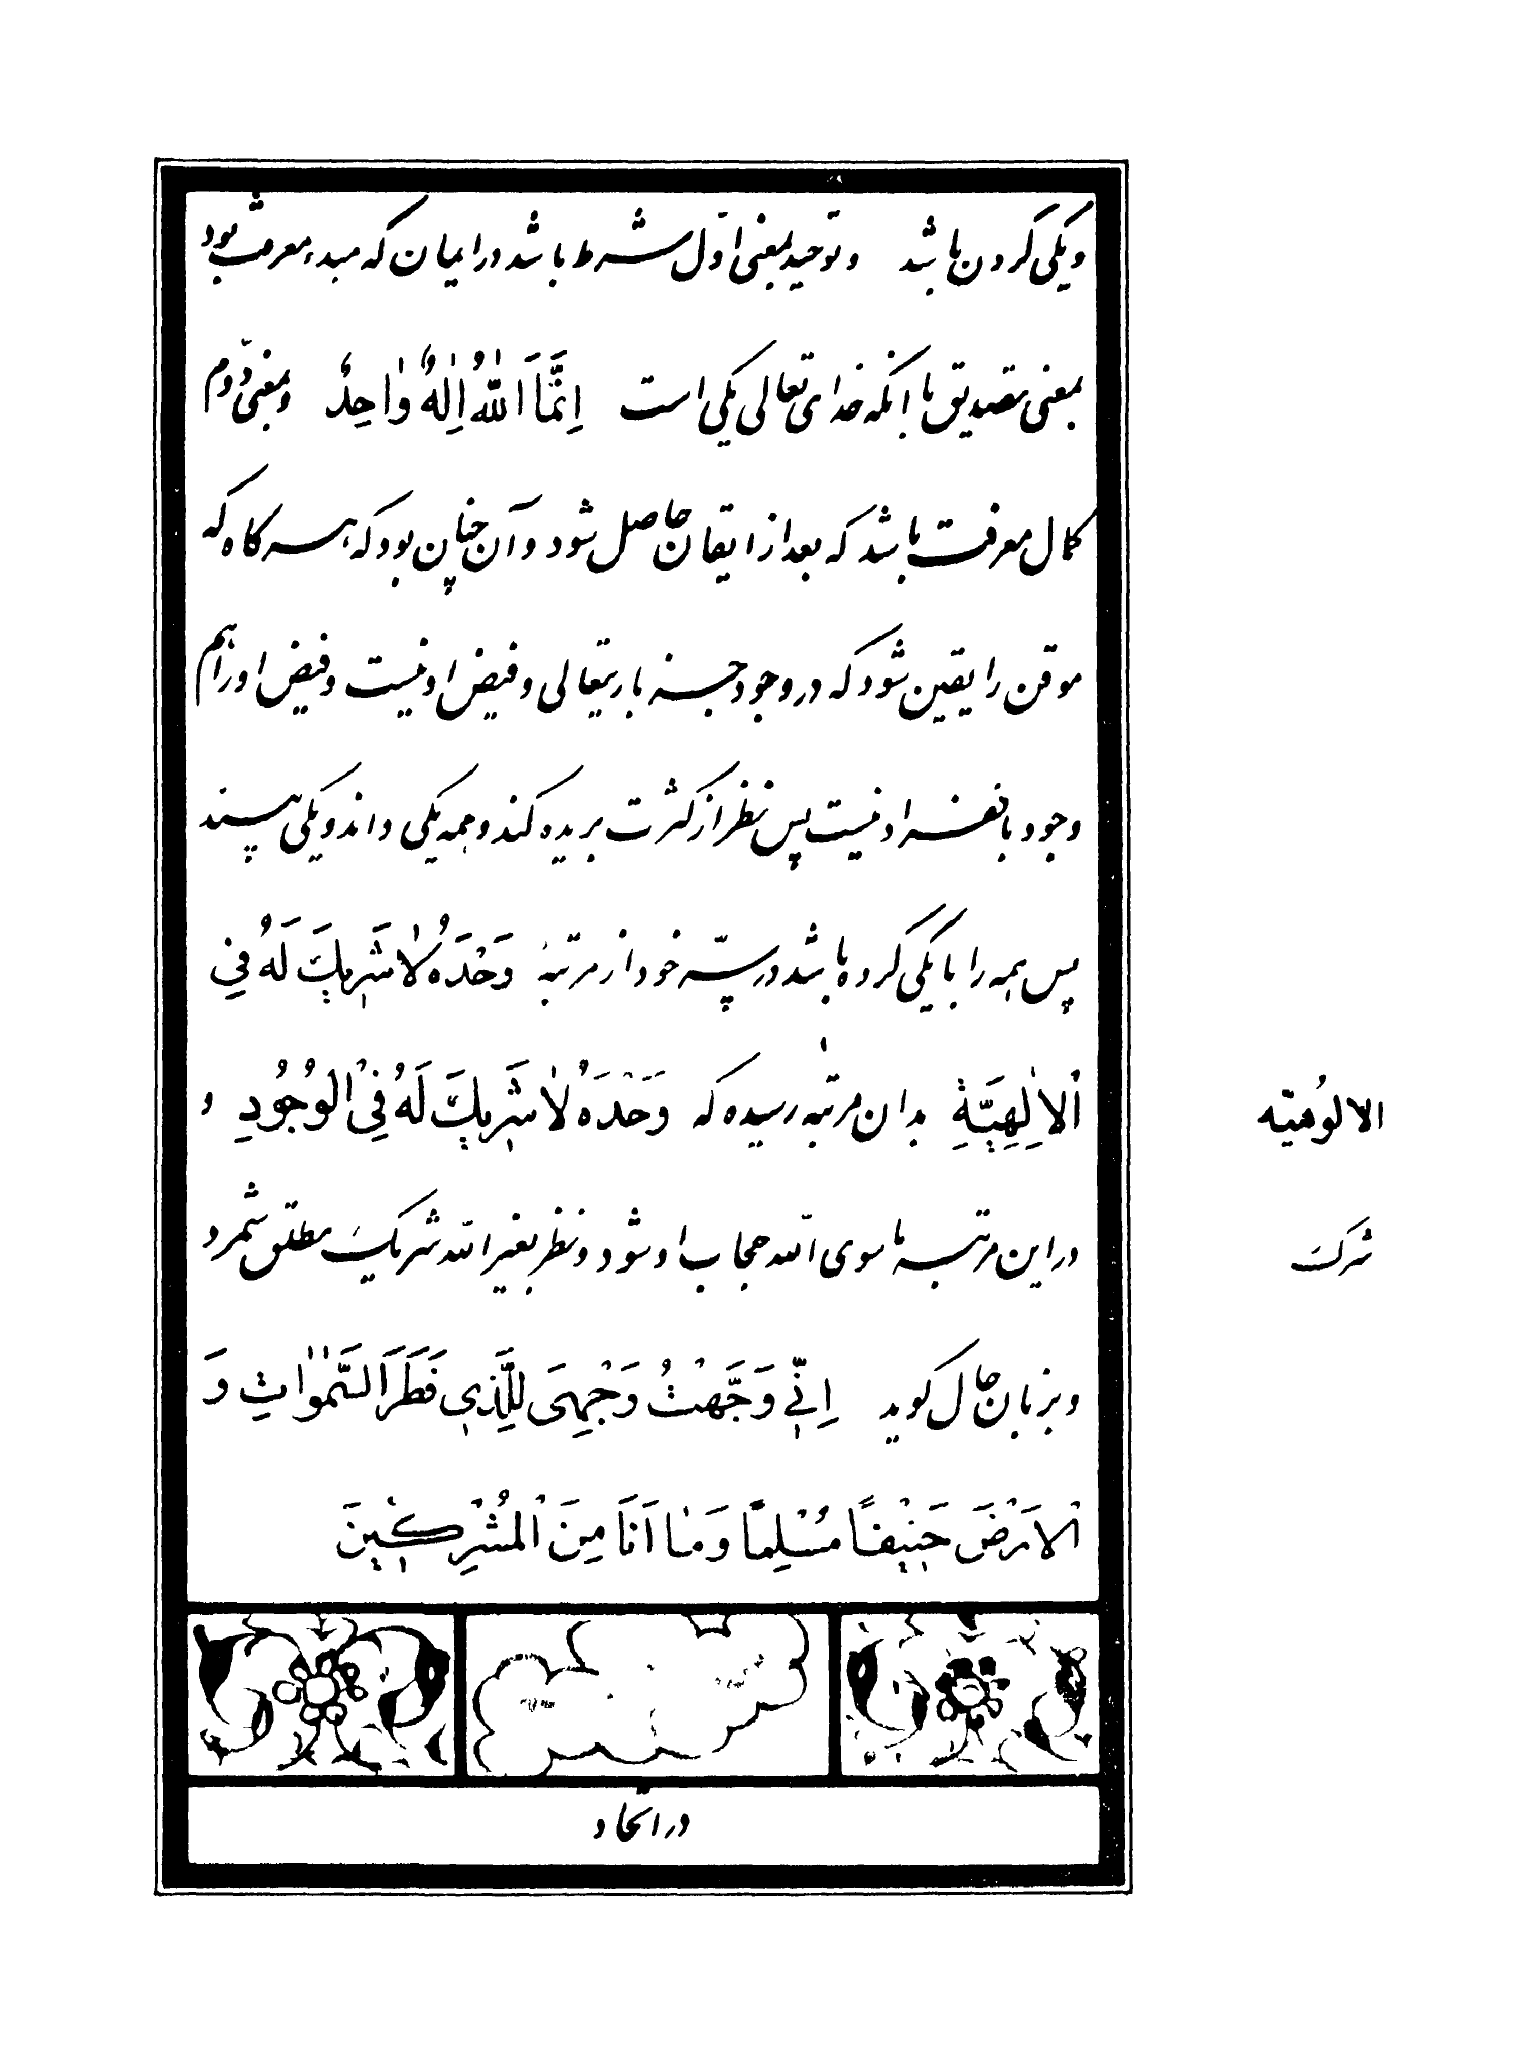 ویکی کردن باشد و توحید بمعنی اوّل شرط باشد در ایمان که مبدء معرفت بود
بمعنی تصدیق بانکه خدای تعالی یکی است اِنَّمَا اَللّٰهُ اِلٰهٌ وٰاحِدٌ و بمعنی دوّم
کمال معرفت باشد که بعد از ایقان حاصل شود و آن چنان بود که هر کاه که
موقن را یقین شود که در وجود جز باریتعالی و فیض او نیست و فیض او را هم
وجود بانفراد نیست پس نظر از کثرت بریده کند و همه یکی داند و یکی بیند
پس همه را با یکی کرده باشد در سرّ خود از مرتبهٔ وَحْدَهُ لاٰ شَرِیكَ لَهُ فِی
اْلاِلٰهِیَّةِ بدان مرتبه رسیده که وَحْدَهُ لاٰ شَرِیكَ لَهُ فِی الْوُجُودِ و
در این مرتبه ماسوی اللّه حجاب او شود و نظر بغیر اللّه شریك مطلق شمرد
و بزبان حال کوید اِنّی وَجَّهْتُ وَجْهِیَ لِلَّذی فَطَرَ السَّمٰوٰاتِ وَ
اْلاَرْضَ حَنیْفاً مُسْلِماً وَ مٰا اَنَا مِنَ الْمُشْرِکینَ
الالوُهیّه
شرك
در اتّحاد